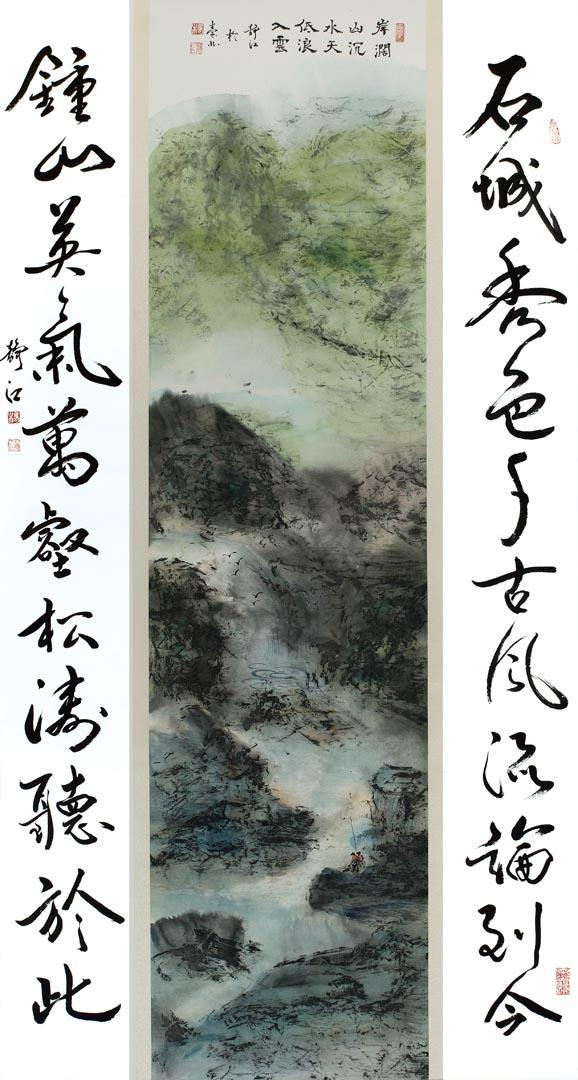 石城秀色千古風流論到今
岸濶
山沉
水天
低浪
入雲
靜江
於
鍾山英氣萬壑松濤聽於此
靜江